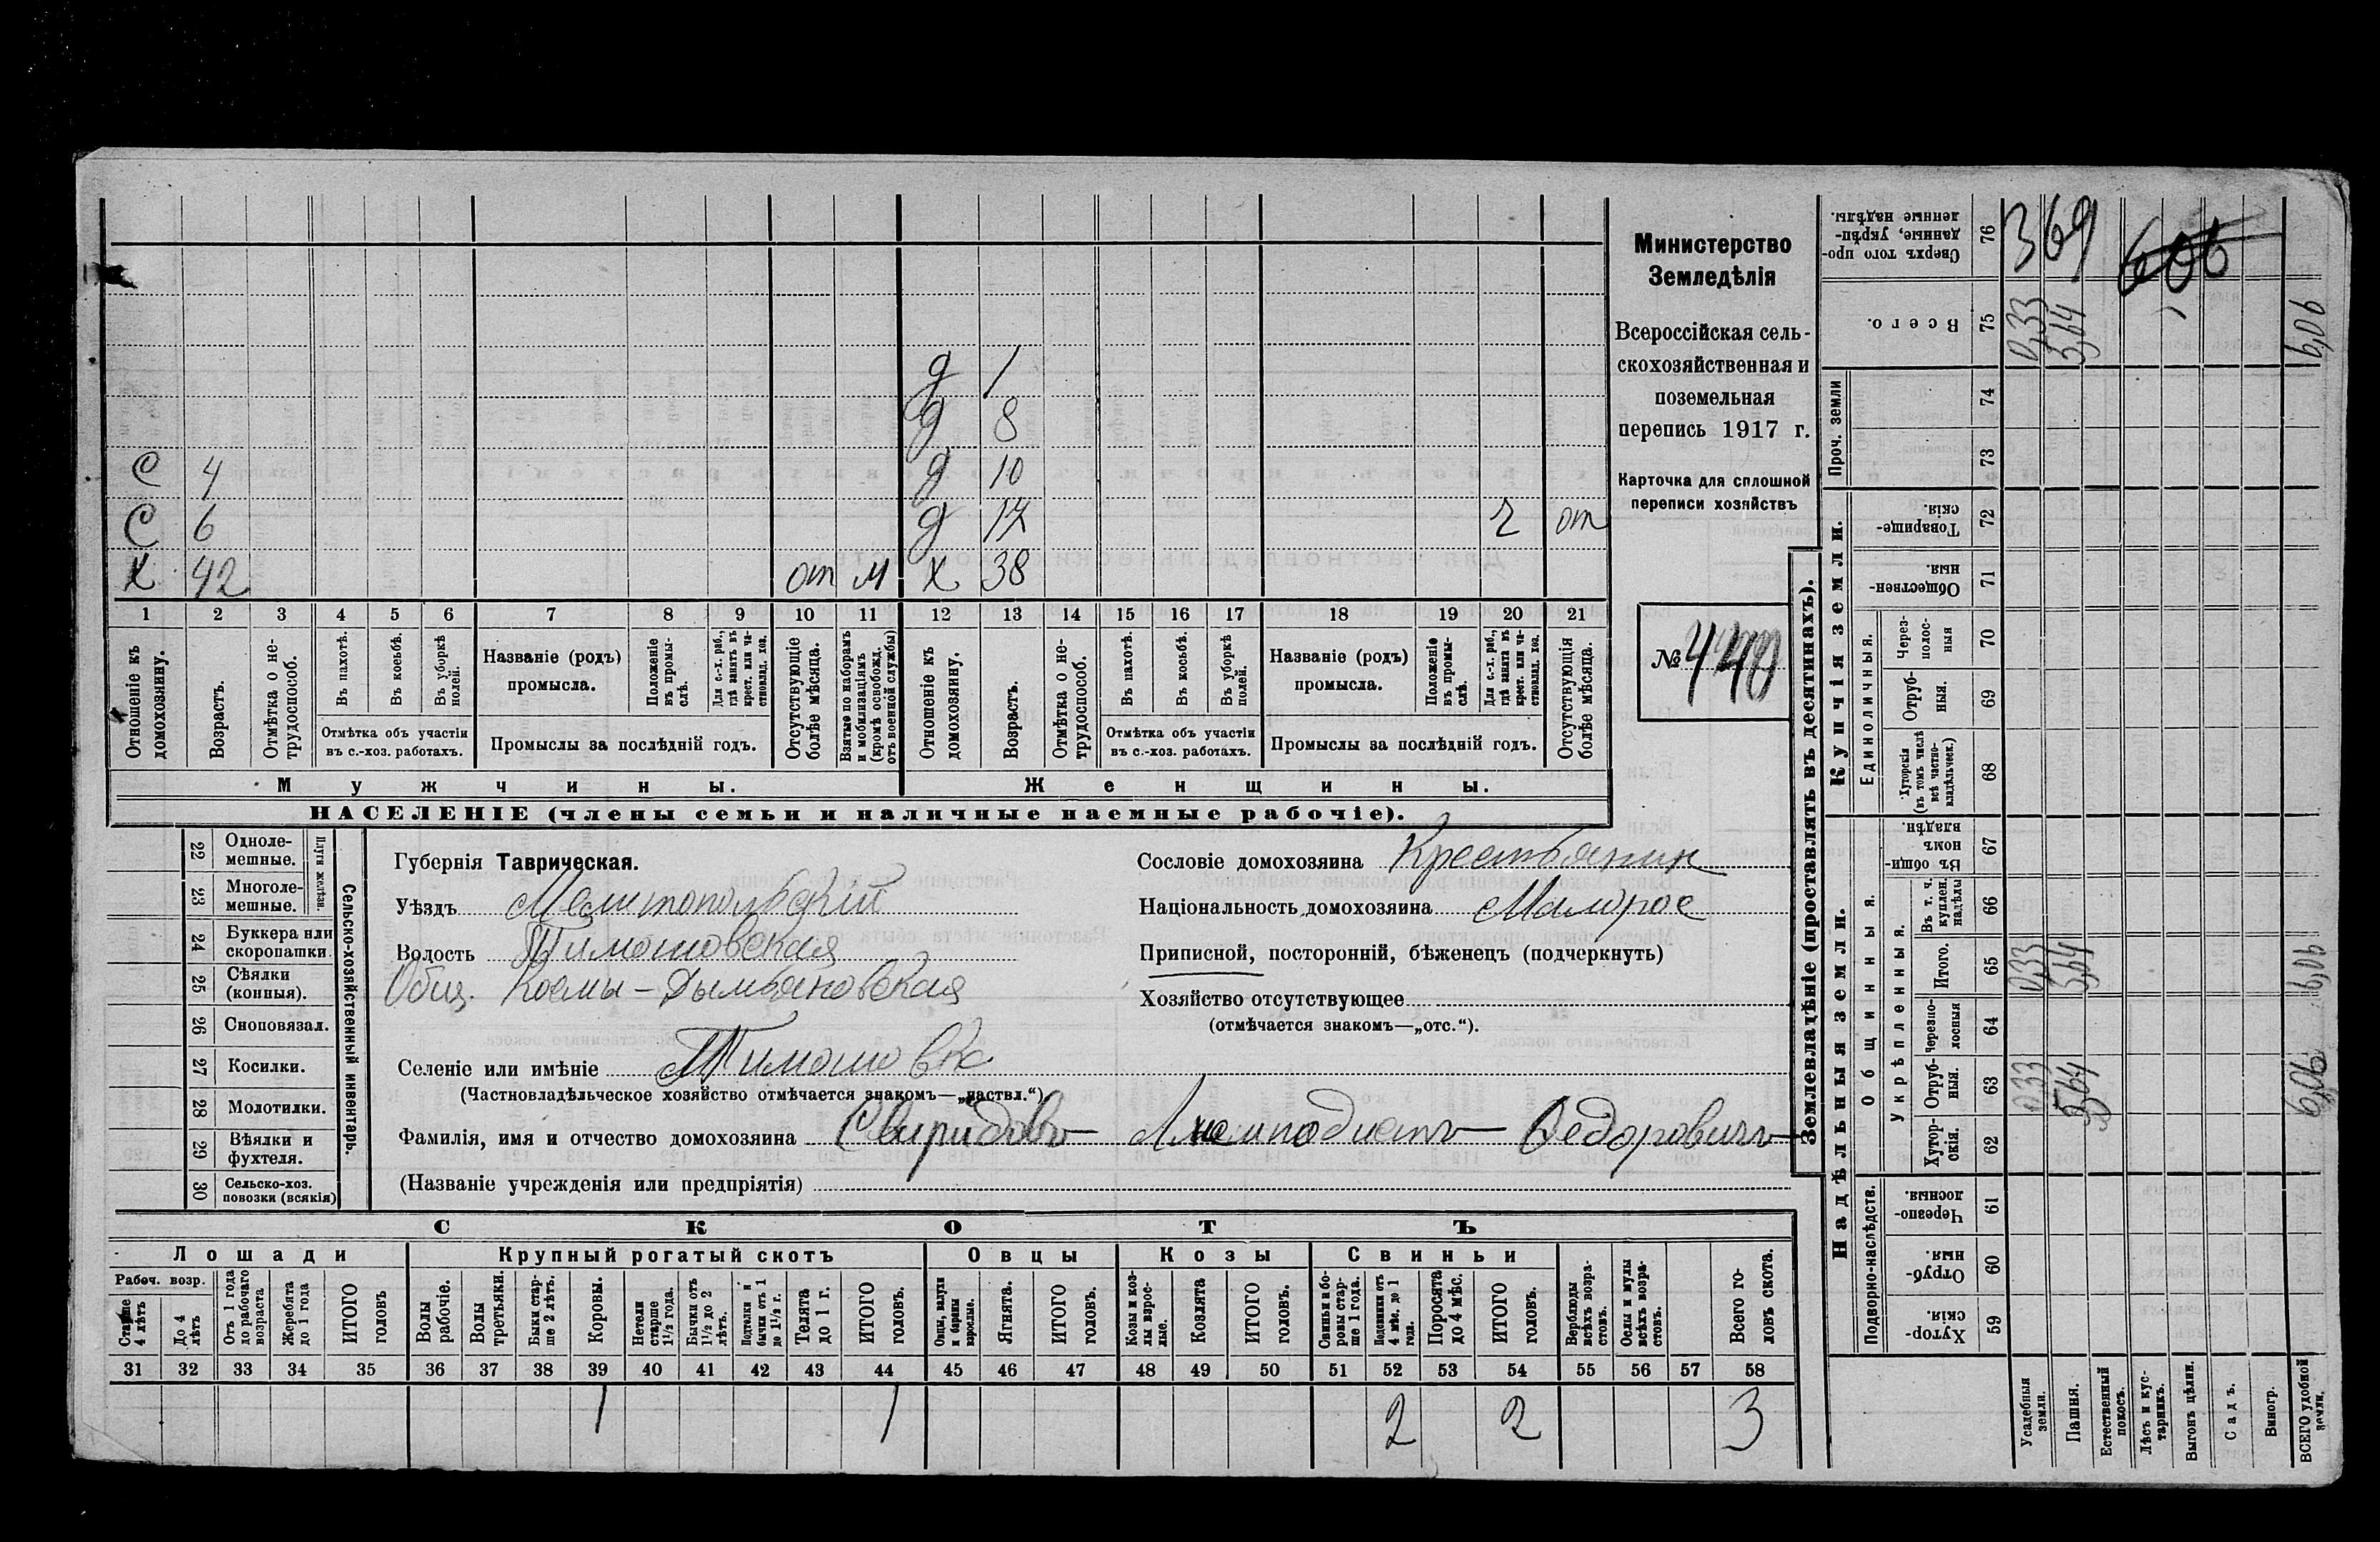 д 1
д 8
С 4 д 10
С 6 д 17 г от
Х 42 от м Х 38
1 2 3 4 5 6 7 8 9 10 11 12 13 14 15 16 17 18 19 20 21
Отношеніе къ домохозяину.
Возрастъ.
Отмѣтка о не-трудоспособ.
Въ пахотѣ.
Въ косьбѣ.
Въ уборкѣ полей.
Отмѣтка объ участіи
въ с.-хоз. работахъ.
Названіе (родъ)
промысла.
Положеніе въ промы-слѣ.
Для с.-х. раб., гдѣ занятъ въ крест. или ча-стновлад. хоз.
Промыслы за послѣдній годъ.
Отсутствующіе болѣе мѣсяца.
Взятые по наборамъ и мобилизаціямъ (кромѣ освобожд. отъ военной службы)
Отношеніе къ домохозяину.
Возрастъ.
Отмѣтка о не-трудоспособ.
Въ пахотѣ.
Въ косьбѣ.
Въ уборкѣ полей.
Отмѣтка объ участіи
въ с.-хоз. работахъ.
Названіе (родъ)
промысла.
Положеніе въ промы-слѣ.
Для с.-х. раб., гдѣ занята въ крест. или ча-стновлад. хоз.
Промыслы за послѣдній годъ.
Отсутствующія болѣе мѣсяца.
Мужчины. Женщины.
НАСЕЛЕНІЕ (члены семьи и наличные наемные рабочіе).
Министерство
Земледѣлія
Всероссійская сель-
скохозяйственная и
поземельная
перепись 1917 г.
Карточка для сплошной
переписи хозяйствъ
№ 440
22 Одноле-мешные.
23 Многоле-мешные.
Плуги желѣзн.
24 Буккера или скоропашки.
25 Сѣялки (конныя).
26 Сноповязал.
27 Косилки.
28 Молотилки.
29 Вѣялки и фухтеля.
30 Сельско-хоз. повозки (всякія)
Сельско-хозяйственный инвентарь.
Губернія Таврическая.
Уѣздъ Мелитопольскій
Волость Тимошовская
Общ. Козмы-Дымьяновская
Селеніе или имѣніе Тимошовка
(Частновладѣльческое хозяйство отмѣчается знакомъ—„частвл.“).
Фамилія, имя и отчество домохозяина Свиридовъ Федоровичъ
(Названіе учрежденія или предпріятія)
Сословіе домохозяина Крестьянин
Національность домохозяина Малорос
Приписной, посторонній, бѣженецъ (подчеркнуть)
Хозяйство отсутствующее
(отмѣчается знакомъ—„отс.“).
СКОТЪ
Лошади Крупный рогатый скотъ Овцы Козы Свиньи
Рабоч. возр.
Старше 4 лѣтъ
До 4 лѣтъ
Отъ 1 года до рабочаго возраста
Жеребята до 1 года
ИТОГО головъ
Волы рабочіе.
Волы третьяки.
Быки стар-ше 2 лѣтъ.
Коровы.
Нетели старше 1½ года.
Бычки отъ 1½ до 2 лѣтъ.
Подтелки и бычки отъ 1 до 1½ г.
Телята до 1 г.
ИТОГО головъ.
Овцы, валухи и бараны взрослые.
Ягнята.
ИТОГО головъ.
Козы и коз-лы взрос-лые.
Козлята
ИТОГО головъ.
Свиньи и бо-ровы стар-ше 1 года.
Подсвинки отъ 4 мѣс. до 1 года.
Поросята до 4 мѣс.
ИТОГО головъ.
Верблюды всѣхъ возра-стовъ.
Ослы и мулы всѣхъ возра-стовъ.
Всего го-ловъ скота.
31 32 33 34 35 36 37 38 39 40 41 42 43 44 45 46 47 48 49 50 51 52 53 54 55 56 57 58
1 1 2 2 3
Землевладѣніе (проставлять въ десятинахъ).
Надѣльныя земли. Купчія земли. Проч. земли
Подворно-наслѣдств.
Общинныя.
Укрѣпленныя.
Единоличныя.
59 Хутор-скія
60 Отруб-ныя.
61 Черезпо-лосныя.
62 Хутор-скія.
63 Отруб-ныя. 0,33 5,64
64 Черезпо-лосныя
65 Итого. 0,33 5,64
66 Въ т. ч. куплен. надѣлы
67 Въ общин-номъ владѣн.
68 Хуторскія (въ томъ числѣ всѣ частно-владѣльческ.)
69 Отруб-ныя.
70 Через-полос-ныя
71 Обществен-ныя.
72 Товарище-скія.
73
74
75 Всего. 0,33 5,64
76 Сверхъ того про-данные, укрѣп-ленные надѣлы.
369
606
Усадебныя земли.
Пашня.
Естественный покосъ.
Лѣсъ и кус-тарникъ.
Выгонъ цѣлин.
Садъ.
Виногр.
ВСЕГО удобной земли.